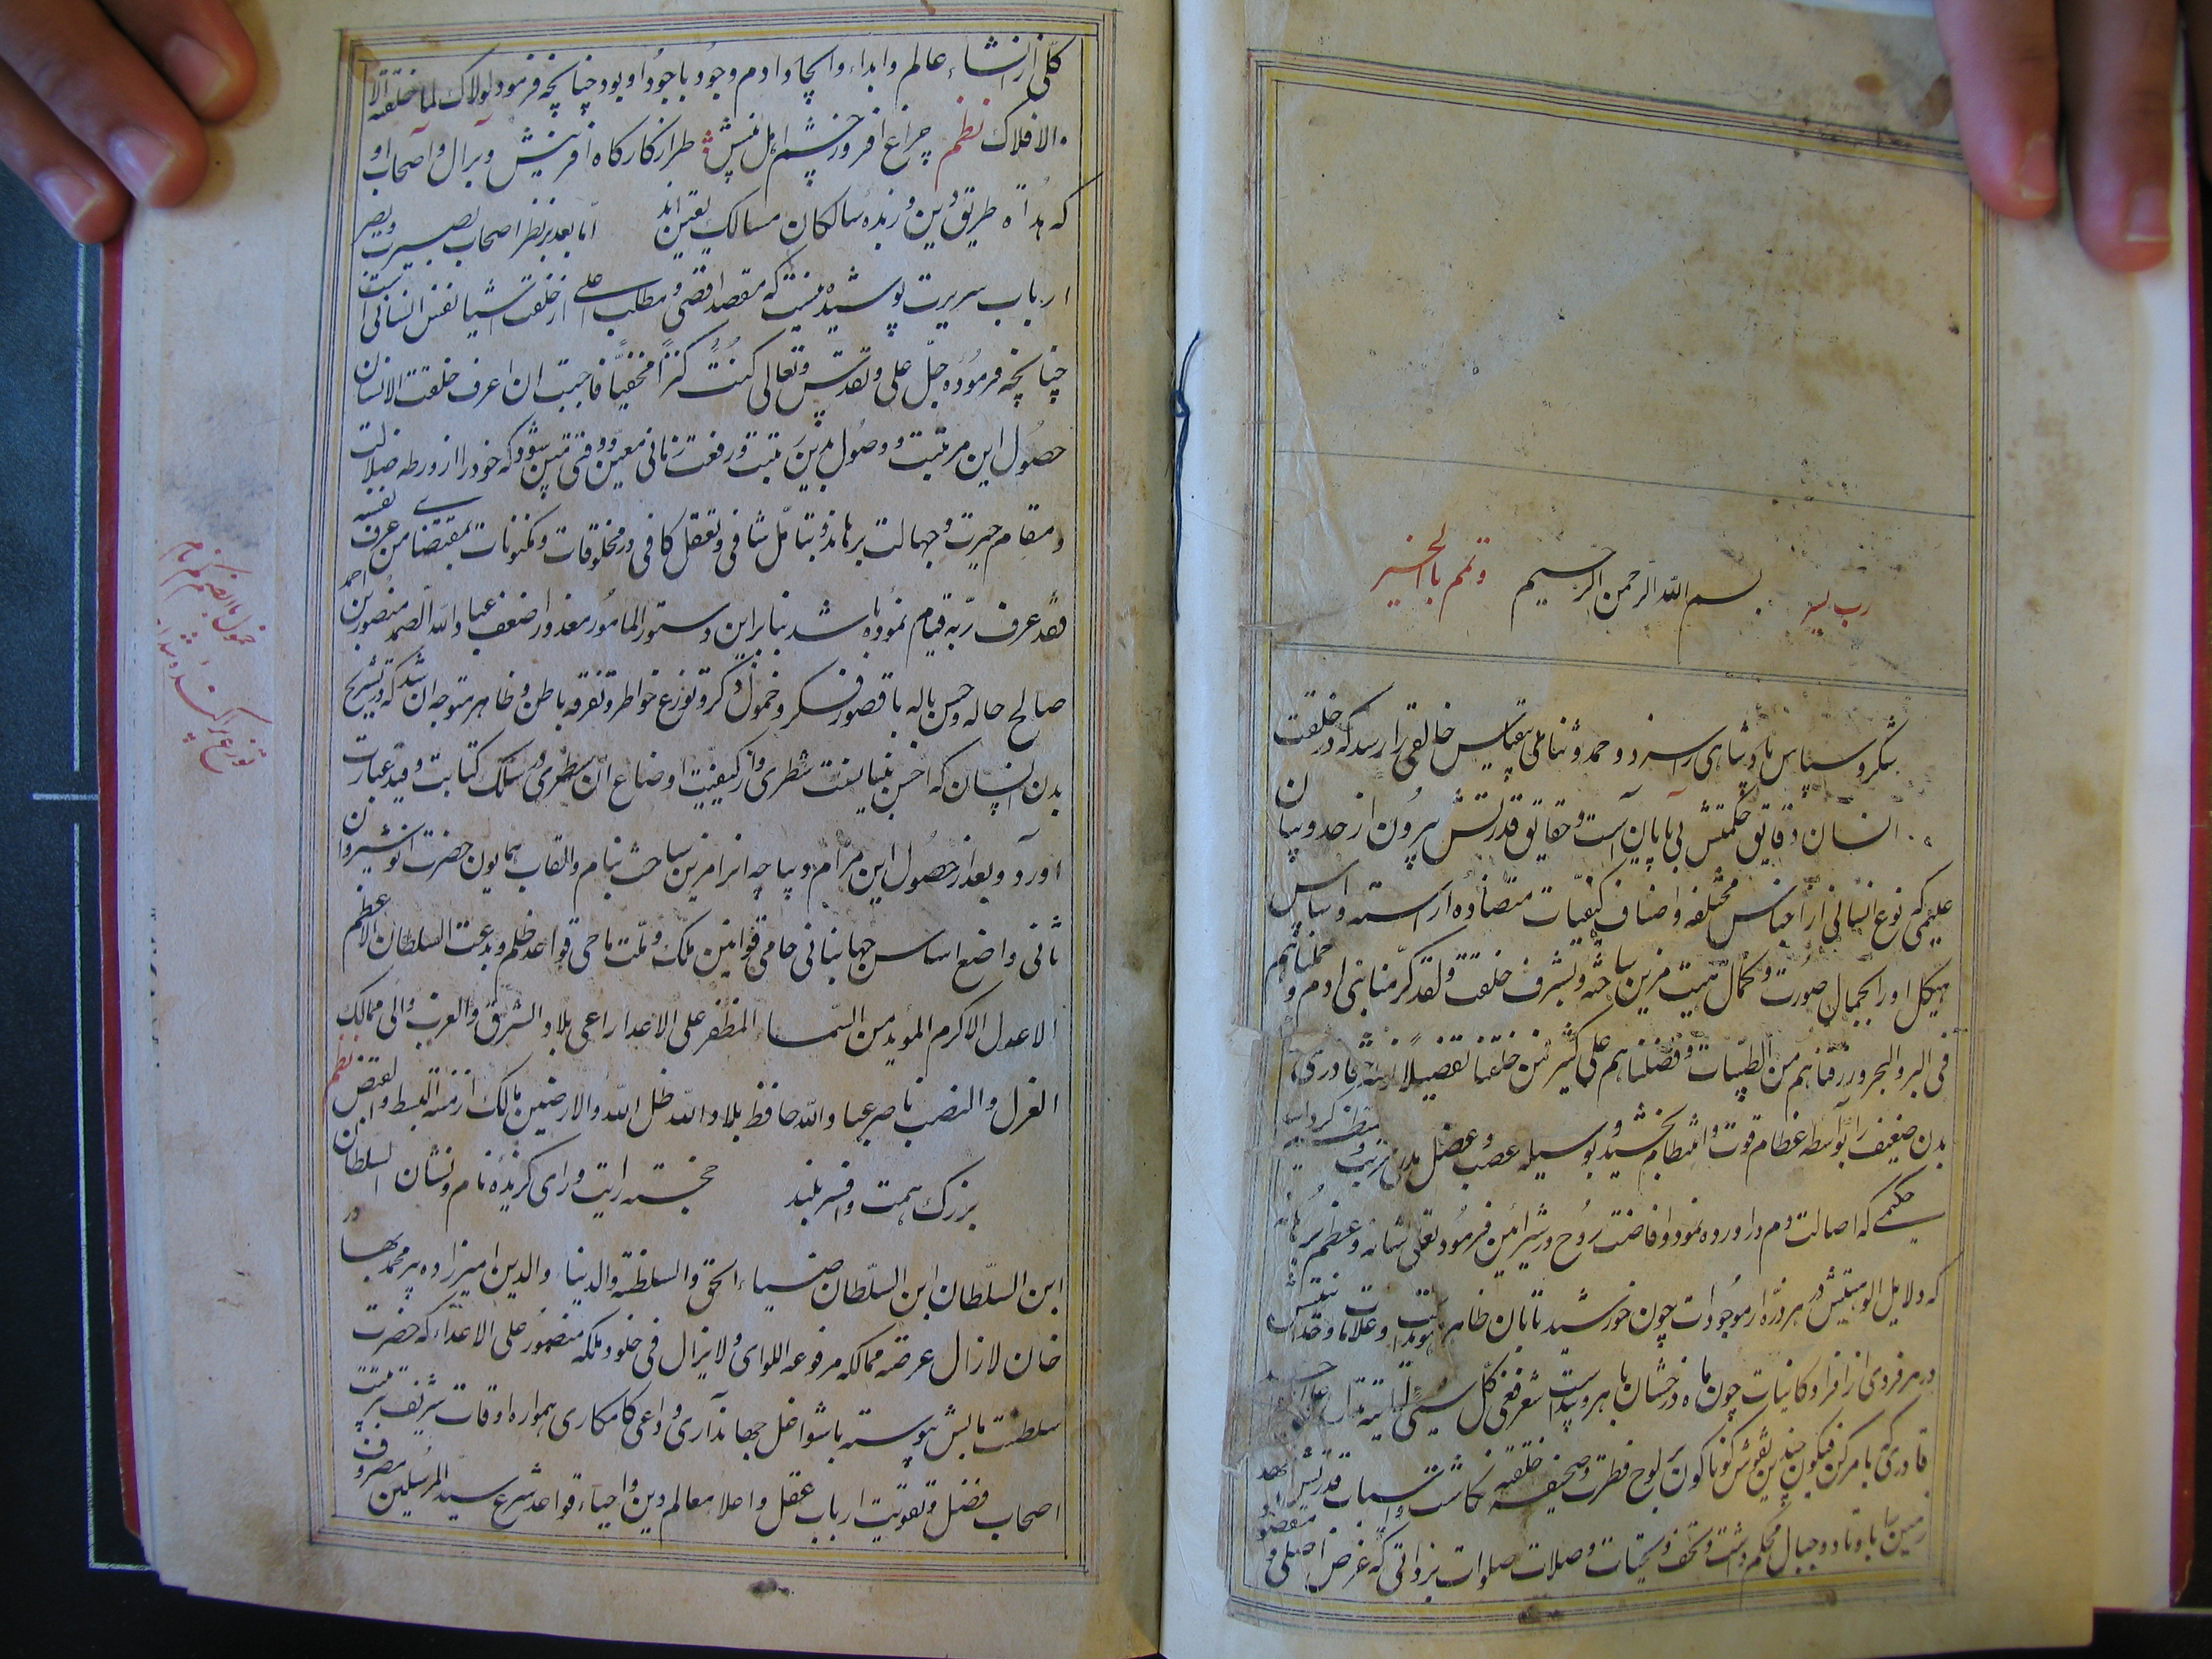 رب یسر بسم الله الرحمن الرحیم وتمم بالخیر
شکر و سپاس پادشاهی را سزد و حمد و ثنای بیقیاس خالقی را رسد که در خلقت
انسان دقایق حکمتش بی پایان است و حقایق قدرتش بیرون از حد و بیان
علیمی که نوع انسانی از اجناس مختلفه و اصناف کیفیات متضاده آراسته و اساس
هیکل او را بجمال صورت و کمال هیئت مزین ساخته و بشرف خلقت ولقد کرمنا بنی ادم و حملناهم
فی البر و البحر و رزقناهم من الطیبات و فضلناهم علی کثیر ممن خلقنا تفضیلا قادری که
بدن ضعیف را بواسطه عظام قوت و انتظام بخشید و بوسیله عصب و عضل
حکیمی که اصالت دم در اورده نمود و افاضت روح در شرائین فرمود تعالی شانه و عظم برهانه
که دلایل الوهیتش در هر ذره از موجودات چون خورشید تابان ظاهر و هویداست و علامات وحدانیتش
در هر فردی از افراد کاینات چون ماه درخشان باهر و پیداست شعر ففی کل شیء له آیة تدل علی
قادری که بامر کن فیکون چندین نقوش گوناگون بر لوح فطرت و صحیفه خلقت نگاشت و اسباب قدرتش
زمین را باوتاد و جبال محکم داشت و تحف و تحیات و صلات صلوات بر ذاتی که غرض اصلی و مقصود
کلی از انشاء عالم و ابداء و ایجاد ادم وجود باجود او بود چنانچه فرمود لولاک لما خلقت
الافلاک نظم چراغ افروز چشم اهل بینش طراز کارگاه افرینش و بر ال و اصحاب او
که هداة طریق دین و زبده سالکان مسالک یقین اند اما بعد بر نظر اصحاب بصیرت و بصر
ارباب سریرت پوشیده نیست که مقصد اقصی و مطلب اعلی از خلقت اشیا نفس انسانی است
چنانچه فرموده جل علی و تقدس و تعالی کنت کنزا مخفیا فاحببت ان اعرف خلقت الانسان
حصول این مرتبت و وصول بدین رتبت و رفعت زمانی معین و وقتی متبین شود که خود را از ورطه ضلالت
و مقام حیرت و جهالت برهاند و بتامل شافی و تعقل کافی در مخلوقات و مکنونات بمقتضای من عرف نفسه
فقد عرف ربه قیام نموده باشد بنا براین دستور المامور معذور اضعف عباد الله الصمد منصور بن احمد
صالح حاله و حسن باله با قصور فکر و خمول ذکر و توزع خواطر و تفرقه باطن و ظاهر متوجه ان شد که در تشریح
بدن انسان که احسن بنیایست شطری و از کیفیت اوضاع ان سطری در سلک کتابت و قید عبارت
اورد و بعد از حصول این مرام دیباچه انرا مزین ساخت بنام و القاب همایون حضرت انوشیروان
ثانی واضع اساس جهانبانی حامی قوانین ملک و ملت ماحی قواعد ظلم و بدعت السلطان الاعظم
الاعدل الاکرم الموید من السماء المظفر علی الاعدا راعی بلاد الشرق و الغرب والی ممالک
العزل و النصب ناصر عباد الله حافظ بلاد الله ظل الله و الارضین مالک ازمنه البسط و القبض نظم
بزرگ همت و افسر بلند خجسته رایت و رای گزیده نام و نشان السلطان
ابن السلطان ابن السلطان ضیاء الحق و السلطنة و الدنیا و الدین امیرزاده پیر محمد بهادر
خان لازال عرصة ممالکه مرفوعه اللوای و لایزال فی خلود ملکه منصور علی الاعداء که حضرت
سلطنت مابش پیوسته با شواغل جهانداری و دواعی کامکاری همواره اوقات شریف بتربیت
اصحاب فضل و تقویت ارباب عقل و اعلا معالم دین و احیاء قواعد شرع سید المرسلین مصروف
خمول بالضم گم نام
توزع پراکنده شدن